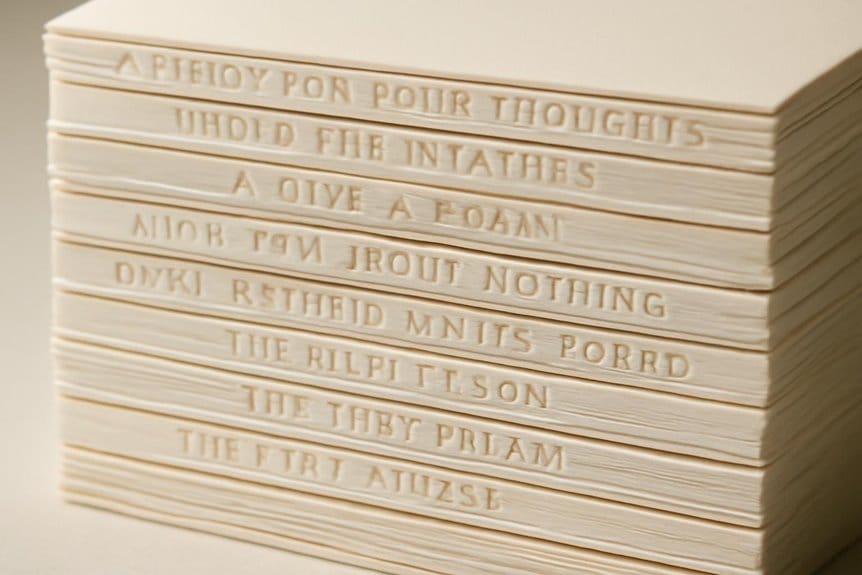 A PIEIOY PON POUR THOUGHTS
UHOID FHE INTATHES
A OIVE A POAANI
AIIOB TPVI JROUT NOTHING
DIVKI RSTHEID MNIITS PORRD
THE RILPI TTSON
THE THBY PRLAM
THE FTRT ATUZSE